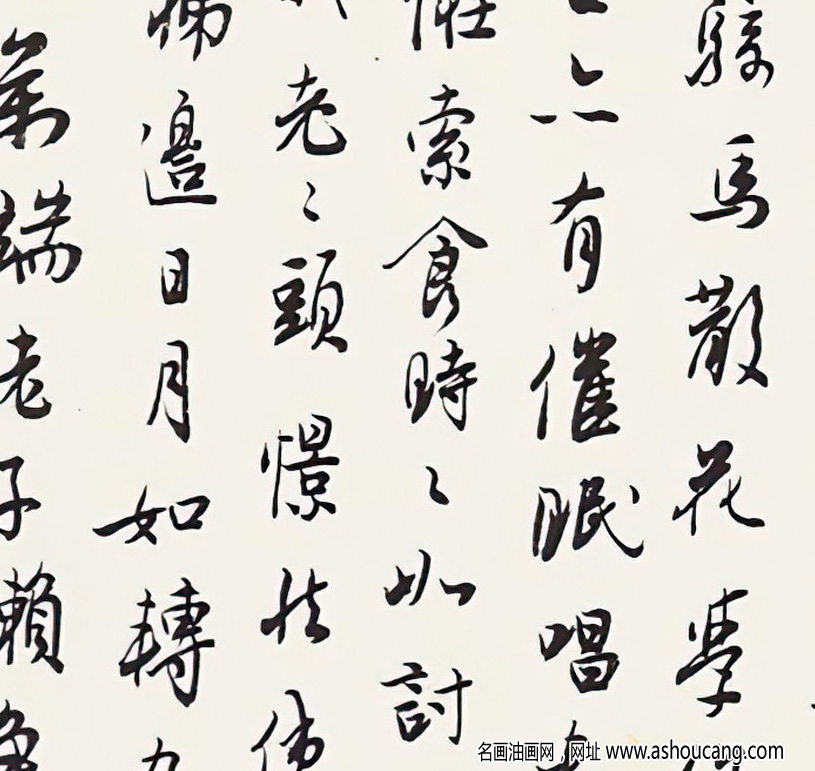 騎馬散花學
六有催眠唱
索食時々如討
老々頭憬
邊日月如轉
端老子賴
名画油画网，网址 www.ashoucang.com